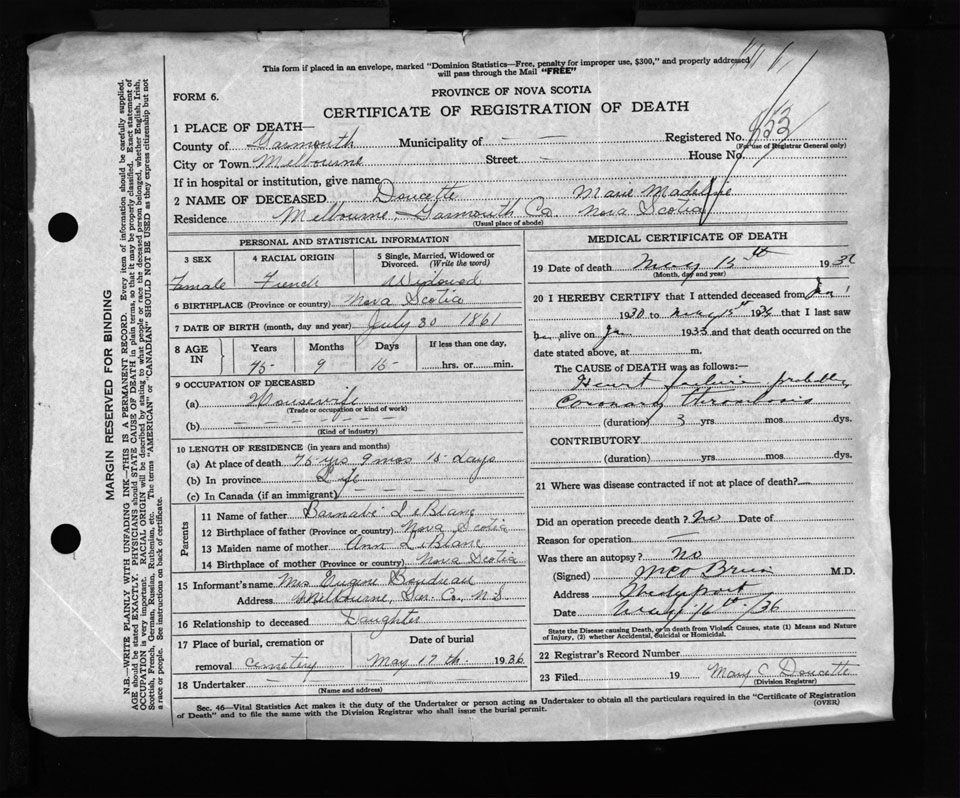 This form if placed in an envelope, marked "Dominion Statistics—Free, penalty for improper use, $300," and properly addressed
will pass through the Mail "FREE"
FORM 6.
PROVINCE OF NOVA SCOTIA
CERTIFICATE OF REGISTRATION OF DEATH
1 PLACE OF DEATH—
County of Yarmouth Municipality of — — Registered No.
(For use of Registrar General only)
City or Town Melbourne Street — House No.
If in hospital or institution, give name
2 NAME OF DECEASED Doucette Marie Madeline
Residence Melbourne Yarmouth Co. Nova Scotia
(Usual place of abode)
PERSONAL AND STATISTICAL INFORMATION
3 SEX 4 RACIAL ORIGIN 5 Single, Married, Widowed or Divorced. (Write the word)
Female French Widowed
6 BIRTHPLACE (Province or country) Nova Scotia
7 DATE OF BIRTH (month, day and year) July 30 1861
8 AGE IN Years Months Days If less than one day,
75 9 15 hrs. or min.
9 OCCUPATION OF DECEASED
(a) Housewife
(Trade or occupation or kind of work)
(b) — — — — —
(Kind of industry)
10 LENGTH OF RESIDENCE (in years and months)
(a) At place of death 75 yrs 9 mos 15 days
(b) In province Life
(c) In Canada (if an immigrant) — — — —
Parents
11 Name of father Barnabé LeBlanc
12 Birthplace of father (Province or country) Nova Scotia
13 Maiden name of mother Ann LeBlanc
14 Birthplace of mother (Province or country) Nova Scotia
15 Informant's name Mrs Eugene Boudreau
Address Melbourne, Yar. Co., N.S.
16 Relationship to deceased Daughter
17 Place of burial, cremation or Date of burial
removal cemetery May 17th. 1936
18 Undertaker — — — — —
(Name and address)
MEDICAL CERTIFICATE OF DEATH
19 Date of death May 15th 1936
(Month, day and year)
20 I HEREBY CERTIFY that I attended deceased from Jan 1
1930 to May 15th 1936 that I last saw
her alive on Jan 1935 and that death occurred on
date stated above, at m.
The CAUSE OF DEATH was as follows:—
Heart failure probably
Coronary thrombosis
(duration) 3 yrs mos dys.
CONTRIBUTORY
(duration) yrs mos dys.
21 Where was disease contracted if not at place of death?
Did an operation precede death? No Date of
Reason for operation —
Was there an autopsy? No
(Signed) M.D.
Address Wedgeport
Date May 16th /36
State the Disease causing Death, or in death from Violent Causes, state (1) Means and Nature
of Injury, (2) whether Accidental, Suicidal or Homicidal.
22 Registrar's Record Number
23 Filed 19 Mary C Doucette
(Division Registrar)
Sec. 46—Vital Statistics Act makes it the duty of the Undertaker or person acting as Undertaker to obtain all the particulars required in the "Certificate of Registration
of Death" and to file the same with the Division Registrar who shall issue the burial permit.
(OVER)
MARGIN RESERVED FOR BINDING
N.B.—WRITE PLAINLY WITH UNFADING INK—THIS IS A PERMANENT RECORD. Every item of information should be carefully supplied.
AGE should be stated EXACTLY. PHYSICIANS should STATE CAUSE OF DEATH in plain terms, so that it may be properly classified. Exact statement of
OCCUPATION is very important. RACIAL ORIGIN will be described by stating to what people or race the deceased person belonged, whether English, Irish,
Scottish, French, German, Russian, Ruthenian, etc. The terms "AMERICAN" or "CANADIAN" SHOULD NOT BE USED as they express citizenship but not
a race or people. See instructions on back of certificate.